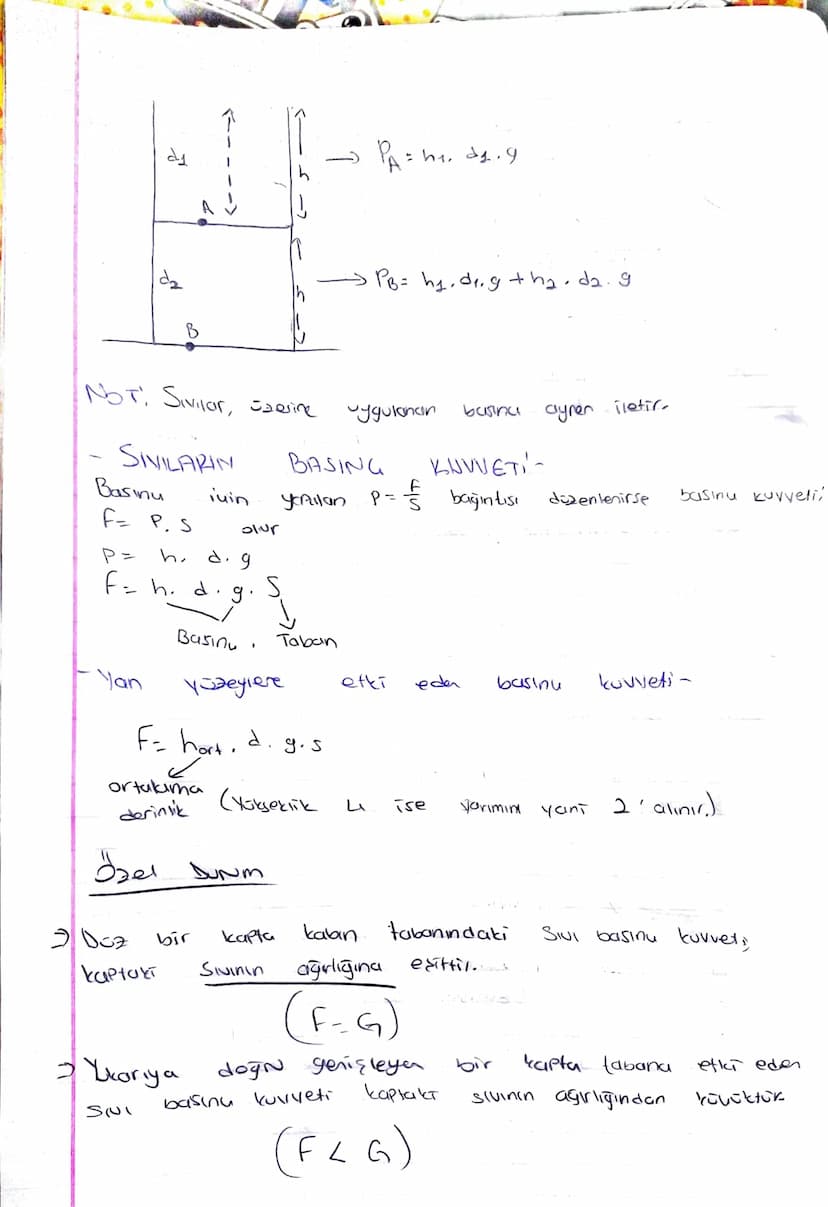 d1
h
→ PA = h1. d1. g
A
d2
h
→ PB = h1. d1. g + h2. d2. g
B
NOT: Sıvılar, üzerine uygulanan basıncı aynen iletir.
- SIVILARIN BASINÇ KUVVETİ -
Basınç için yazılan P = F/S bağıntısı düzenlenirse basınç kuvveti;
F = P. S olur
P = h. d. g
F = h. d. g. S
Basınç. Taban
- Yan yüzeylere etki eden basınç kuvveti -
F = hort. d. g. s
ortalama
derinlik (Yükseklik 4 ise yarımını yani 2' alınır.)
Özel Durum
⇒ Düz bir kapta kabın tabanındaki sıvı basınç kuvveti;
kaptaki sıvının ağırlığına eşittir.
(F = G)
⇒ Yukarıya doğru genişleyen bir kapta tabana etki eden
sıvı basınç kuvveti kaptaki sıvının ağırlığından küçüktür
(F < G)